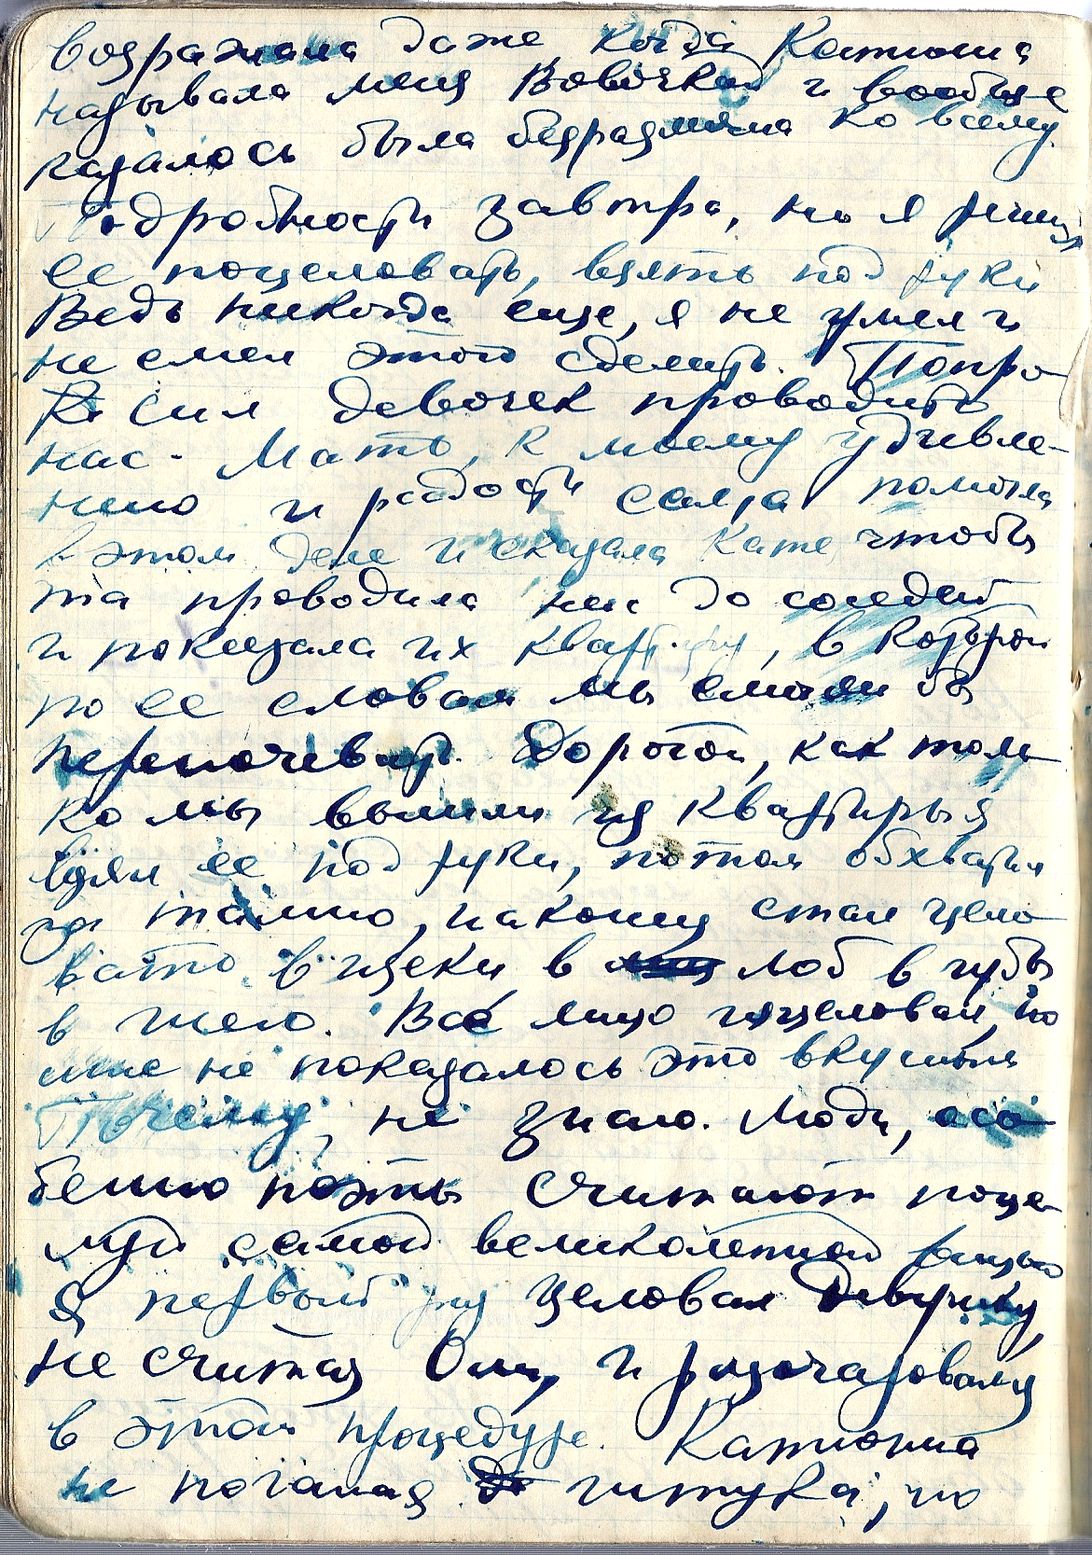 возражала даже, когда Катюша
называла меня Вовочкой и вообще
казалось была безразлична ко всему.
Подробности завтра, но я решил
ее поцеловать, взять под руки
Ведь никогда еще, я не умел и
не смел этого сделать. Попро-
сил девочек проводить
нас. Мать, к моему удивле-
нию и радости сама помогла
в этом деле и сказала Кате, чтобы
та проводила нас до соседей
и показала их квартиру, в которой
по ее словам мы смогли бы
переночевать. Дорогой, как толь-
ко мы вышли из квартиры я
взял ее под руки, потом обхватил
за талию, наконец стал цело-
вать в щеки, в лоб в губы
в шею. Всё лицо исцеловал, но
мне не показалось это вкусным
Почему, не знаю. Люди, осо-
бенно поэты считают поце-
луй самой великолепной вещью
Я первый раз целовал девушку,
не считая Оли, и разочаровался
в этой процедуре. Катюша
не поганая штука, но